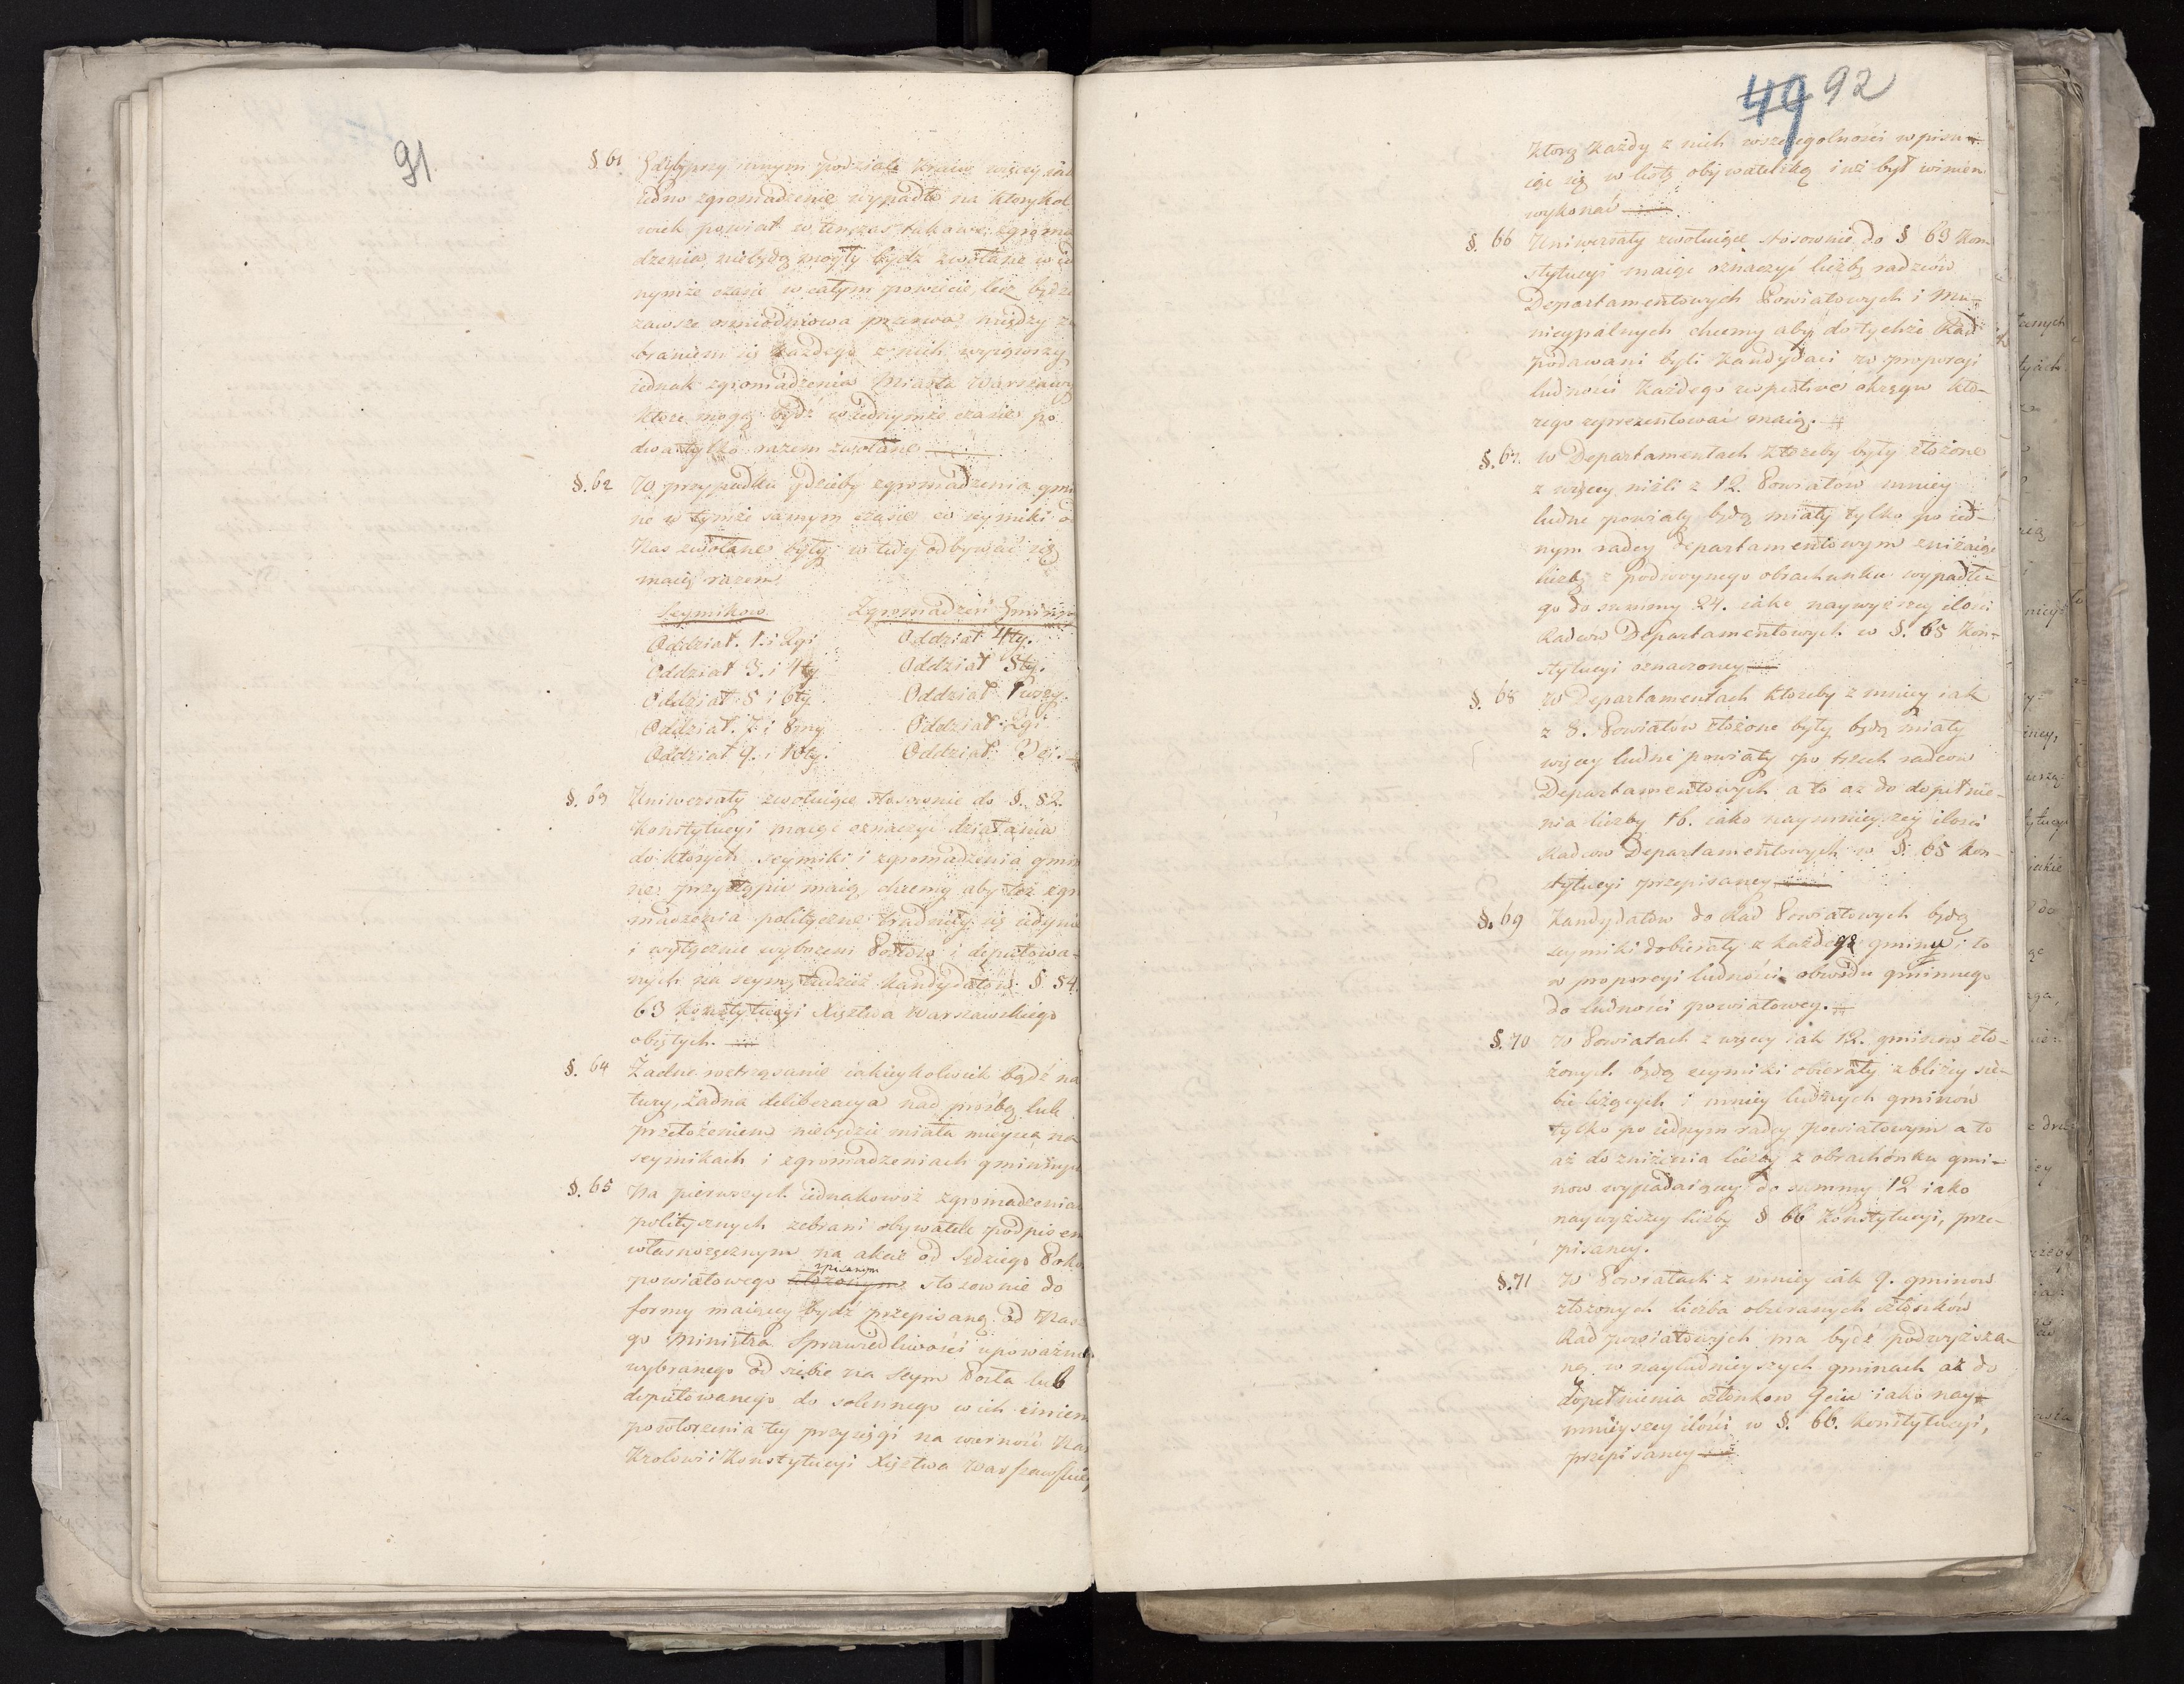 91
§ 61. Gdyby przy innym podziale kraiu więcey iak
iedno zgromadzenie wypadło na ktorykol
wiek powiat w tenczas takowe zgroma
dzenia niebędą mogły bydź zwołane w ie
nymże czasie w całym powiecie, lecz będzie
zawsze osmiodniowa przerwa między ze
braniem się każdego z nich wyiąwszy
iednak zgromadzenia Miasta Warszawy
ktore mogą bydź w iednymże czasie po
dwa tylko razem zwołane
§. 62 W przypadku gdzieby zgromadzenia gmi
ne w tymże samym czasie co seymiki od
Nas zwołane były w tedy odbywać się
maią razem
Seymikow Zgromadzeń Gminny
Oddział. 1. i 2gi Oddział 4ty.
Oddział 3. i 4ty Oddział 5ty.
Oddział 5 i 6ty Oddział 1wszy.
Oddział. 7. i 8my Oddział 2gi
Oddział 9. i 10ty. Oddział 3ci.
§. 63 Uniwersały zwołuiące stosownie do §. 52.
Konstytucyi maiąc oznaczyć działania
do ktorych seymiki i zgromadzenia gmin
ne przystąpić maią, chcemy aby też zgro
madzenia polityczne trudniły się iedynie
i wyłącznie wyborem Posłow i deputowa-
nych na seym, tudzież Kandydatow §. 54.
63 Konstytucyi Xięztwa Warszawskiego
obiętych.
§. 64 Żadne roztrząsanie iakieykolwiek bądź na
tury, żadna deliberacya nad prośbą lub
przełożeniem niebędzie miała mieysca na
seymikach i zgromadzeniach gminnych
§. 65 Na pierwszych iednakowoż zgromadzenia
politycznych zebrani obywatele podpisem
własnoręcznym na akcie od Sędziego Poko
spisanym
powiatowego złożonym stosownie do
formy maiącey bydź przepisaną od Nasze
go Ministra Sprawiedliwości upoważnia
wybranego od siebie na Seym Posła lub
deputowanego do solennego w ich imieni
powtorzenia tey przysięgi na wierność Na
Krolowi i Konstytucyi Xięztwa Warszawskie
49 92
ktorą każdy z nich wszczegolności wpisu-
iąc się w listę obywatelską iuż był winien
wykonać
§. 66 Uniwersały zwołuiące stosownie do § 63 Kon
stytucyi maiąc oznaczyć liczbę radzców
Departamentowych Powiatowych i Mu-
nicypalnych chcemy aby do tychże Rad
podawani byli Kandydaci w proporcyi
ludności każdego respective okręgu kto-
rego reprezentować maią.
§. 67. W Departamentach ktoreby były złożone
z więcey niżli z 12. Powiatow mniey
ludne powiaty będą miały tylko po ied-
nym radcy departamentowym zniżaiąc
liczbę z podwoynego obrachunku wypadłe-
go do summy 24. iako naywyższey ilości
Radcow Departamentowych w §. 65 Kon-
stytucyi oznaczoney
§. 68 W Departamentach ktoreby z mniey iak
z 8. Powiatow złożone były będą miały
więcey ludne powiaty po trzech radcow
Departamentowych a to aż do dopełnie-
nia liczby 16. iako naymnieyszey ilości
Radcow Departamentowych w §. 65 Kon-
stytucyi przepisaney
§. 69 Kandydatow do Rad Powiatowych będą
seymiki dobierały z każdego gminu i to
w proporcyi ludności obwodu gminnego
do ludności powiatowey.
§. 70 W Powiatach z więcey iak 12. gminow zło-
żonych będą seymiki obierały z bliżey sie-
bie leżących i mniey ludnych gminow
tylko po iednym radcy powiatowym a to
aż do zniżenia liczby z obrachonku gmi-
now wypadaiącey do summy 12 iako
naywyższey liczby § 66 Konstytucyi, prze-
pisaney.
§. 71 W Powiatach z mniey iak 9. gminow
złożonych liczba obieranych członków
Rad powiatowych ma bydź podwyższa-
ną w nayludnieyszych gminach aż do
dopełnienia członkow 9ciu iako nay-
mnieyszey ilości w §. 66. Konstytucyi,
przepisaney